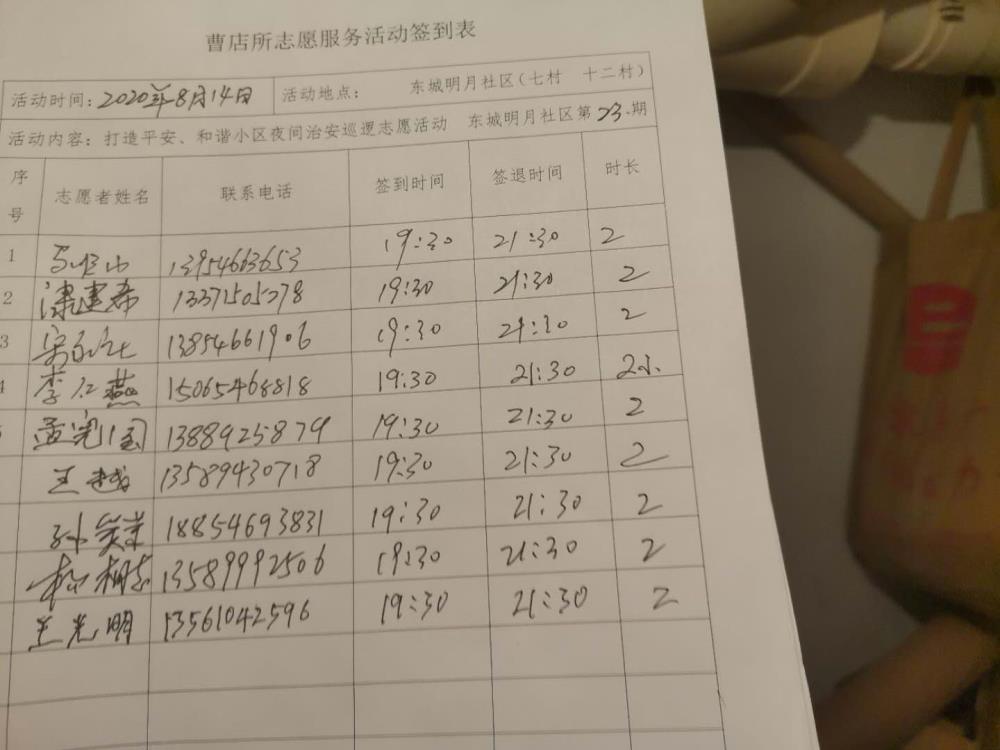 曹店所志愿服务活动签到表
活动时间：2020年8月14日 活动地点： 东城明月社区（七村 十二村）
活动内容：打造平安、和谐小区夜间治安巡逻志愿活动 东城明月社区第23.期
序号 志愿者姓名 联系电话 签到时间 签退时间 时长
1 13954663653 19:30 21:30 2
2 建希 13371505278 19:30 21:30 2
3 13854661906 19:30 21:30 2
4 李仁燕 15065468818 19:30 21:30 2小.
5 孟宪国 1388925879 19:30 21:30 2
王越 13589430718 19:30 21:30 2
孙 18854693831 19:30 21:30 2
13589992506 19:30 21:30 2
王光明 13561042596 19:30 21:30 2